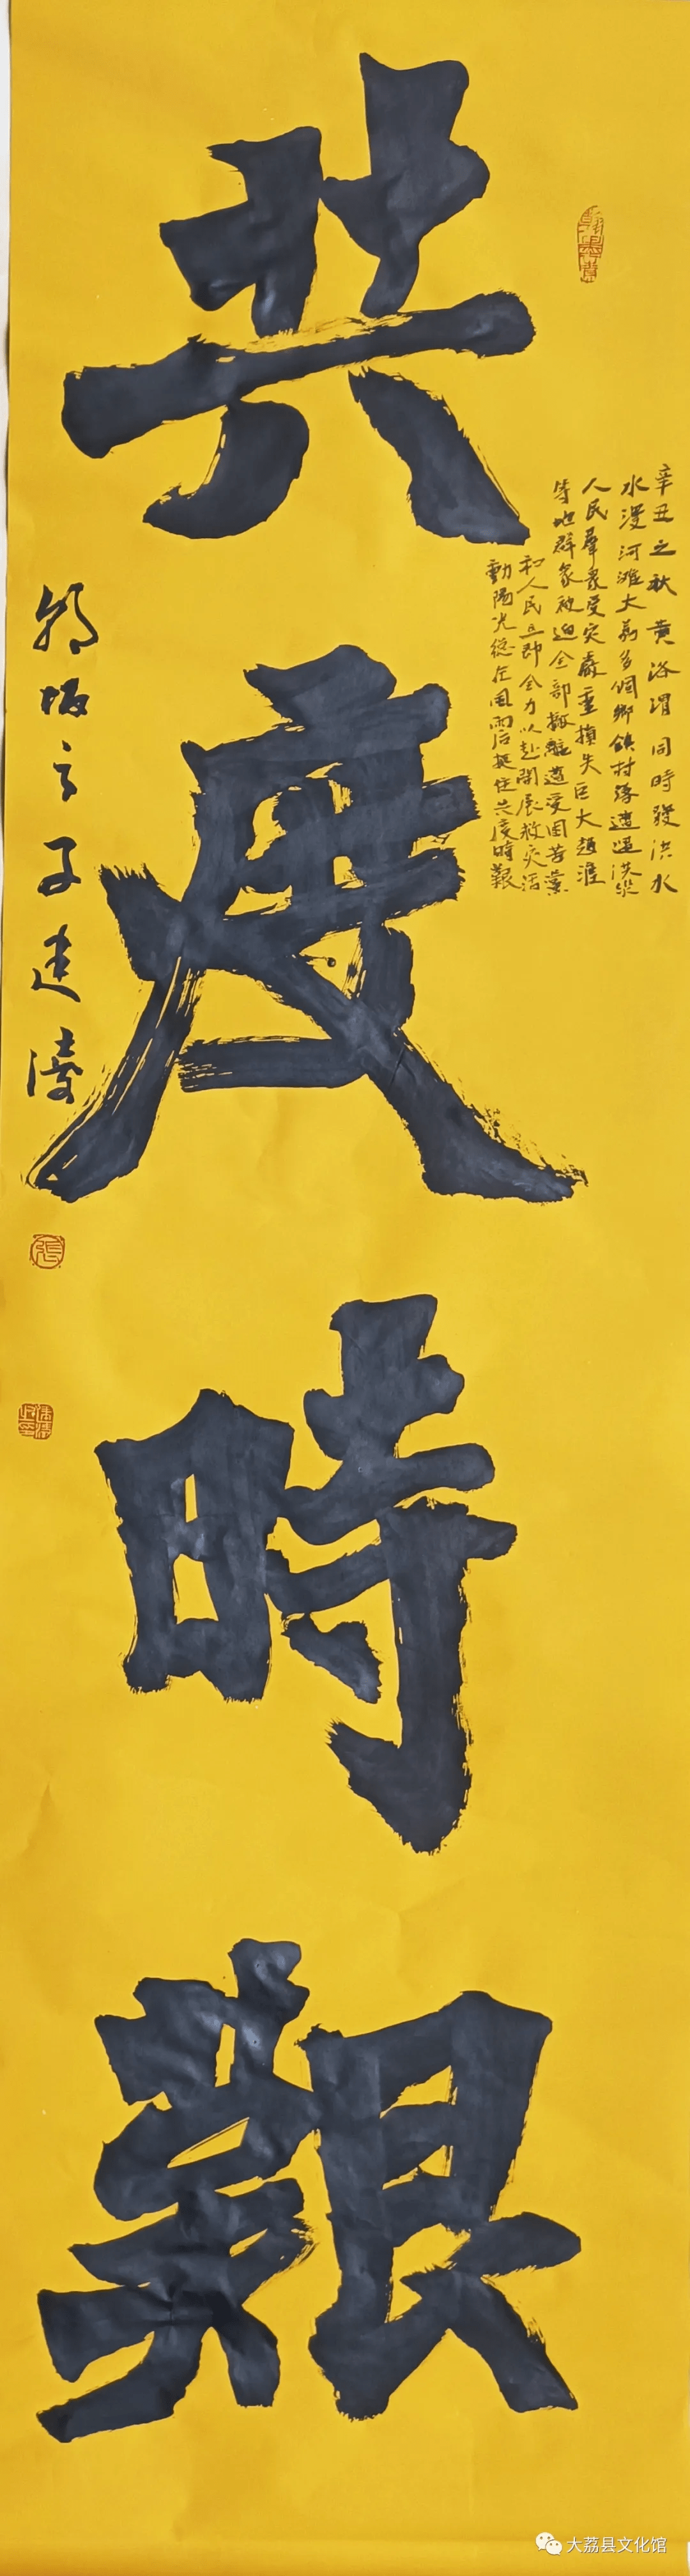 共度時艱
辛丑之秋黄洛渭同時發洪水
水漫河滩大荔多個鄉鎮村落遭遇洪災
人民羣眾受灾嚴重損失巨大趙渡
等地群众被迫全部撤離遭受困苦黨
和人民立即全力以赴開展救灾活
動陽光總在風雨后挺住共度時艱
朝坂之子建濤
張
大荔县文化馆